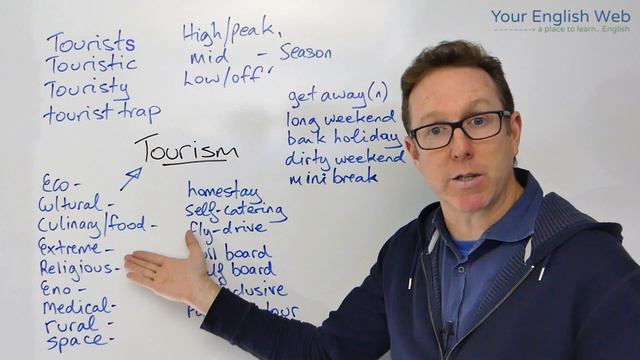 Your English Web
a place to learn...English
Tourists
Touristic
Touristy
tourist trap
High/peak,
mid - Season
Low/off'
get away(n)
long weekend
bank holiday
dirty weekend
mini break
Tourism
Eco-
Cultural-
Culinary/food-
Extreme-
Religious-
Eno-
Medical-
rural-
space-
homestay
self-catering
fly-drive
board
board